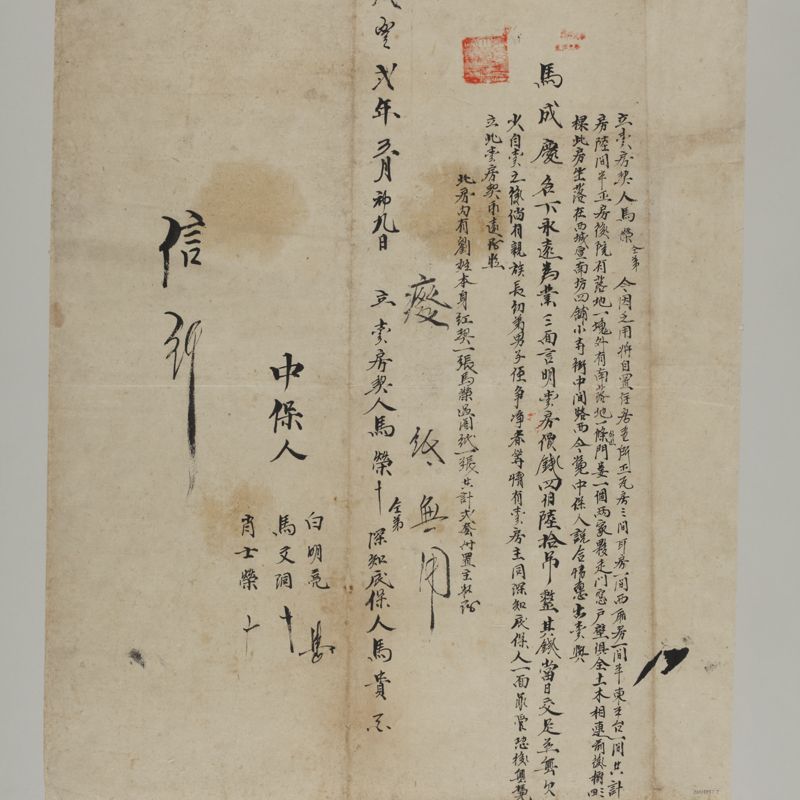 立賣房契人馬榮 仝弟 今因乏用將自置住居壹所正瓦房三間耳房一間西廂房一間半東平台一間共計
房陸間半正房後院有落地一塊外有南落地一條門壹一個兩家夥走門窓戶壁俱全土木相連前後樹三四
棵此房坐落在西城宣南坊四舖小寺街中間路西今凴中保人說合情愿出賣與
馬成慶名下永遠為業三面言明賣房價錢四百陸拾吊整其錢當日交足並無欠
少自賣之後倘有親族長幼弟男子侄爭凈者等情有賣房主同深知底保人一面承管恐後無凴
立此賣房契永遠為照
此房內有劉姓本身紅契一張馬榮 紙一張共計弍套卅置主收存
廢紙無用
豐弍年五月初九日 立賣房契人馬榮十 仝弟 深知底保人馬貴
中保人
白明亮
馬文 十
肖士榮 十
信行